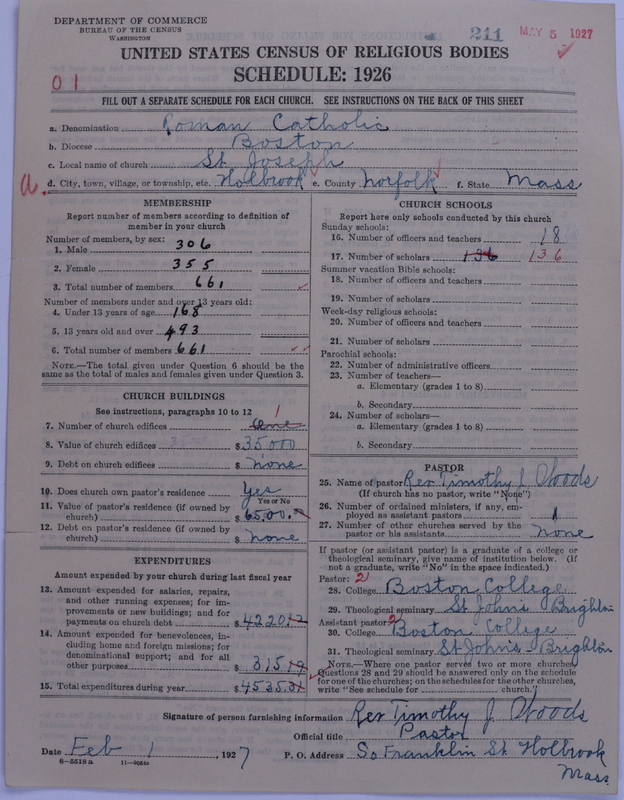 DEPARTMENT OF COMMERCE
BUREAU OF THE CENSUS
WASHINGTON
211
MAY 5 1927
UNITED STATES CENSUS OF RELIGIOUS BODIES
SCHEDULE: 1926
01
FILL OUT A SEPARATE SCHEDULE FOR EACH CHURCH. SEE INSTRUCTIONS ON THE BACK OF THIS SHEET
a. Denomination Roman Catholic
b. Diocese Boston
c. Local name of church St. Joseph
a. d. City, town, village, or township, etc. Holbrook e. County Norfolk f. State Mass
MEMBERSHIP
Report number of members according to definition of
member in your church
Number of members, by sex:
1. Male 306
2. Female 355
3. Total number of members 661
Number of members under and over 13 years old:
4. Under 13 years of age 168
5. 13 years old and over 493
6. Total number of members 661
NOTE.—The total given under Question 6 should be the
same as the total of males and females given under Question 3.
CHURCH BUILDINGS
See instructions, paragraphs 10 to 12
7. Number of church edifices one 1
8. Value of church edifices $35000
9. Debt on church edifices $ none
10. Does church own pastor's residence Yes
Yes or No
11. Value of pastor's residence (if owned by
church) $6500.
12. Debt on pastor's residence (if owned by
church) $ none
EXPENDITURES
Amount expended by church during last fiscal year
13. Amount expended for salaries, repairs,
and other running expenses; for im-
provements or new buildings; and for
payments on church debt $4220.12
14. Amount expended for benevolences, in-
cluding home and foreign missions; for
denominational support; and for all
other purposes $315.19
15. Total expenditures during year $4535.31
CHURCH SCHOOLS
Report here only schools conducted by this church
Sunday schools:
16. Number of officers and teachers 18
17. Number of scholars 136 136
Summer vacation Bible schools:
18. Number of officers and teachers
19. Number of scholars
Week-day religious schools:
20. Number of officers and teachers
21. Number of scholars
Parochial schools:
22. Number of administrative officers
23. Number of teachers—
a. Elementary (grades 1 to 8)
b. Secondary
24. Number of scholars—
a. Elementary (grades 1 to 8)
b. Secondary
PASTOR
25. Name of pastor Rev Timothy J. Woods
(If church has no pastor, write "None")
26. Number of ordained ministers, if any, em-
ployed as assistant pastors 1
27. Number of other churches served by the
pastor or his assistants none
If pastor (or assistant pastor) is a graduate of a college or
theological seminary, give name of institution below. (If
not a graduate, write "No" in the space indicated.)
Pastor: 2
28. College Boston College
29. Theological seminary St Johns Brighton
Assistant pastor: 2
30. College Boston College
31. Theological seminary St John's Brighton
NOTE.—Where one pastor served two or more churches
Questions 28 and 29 should be answered only on the schedule
for one of the churches; on the schedules for the other churches,
write "See schedule for church."
Signature of person furnishing information Rev Timothy J. Woods
Official title Pastor
Date Feb 1, 1927 P. O. Address So Franklin St. Holbrook
Mass.
6-5518a